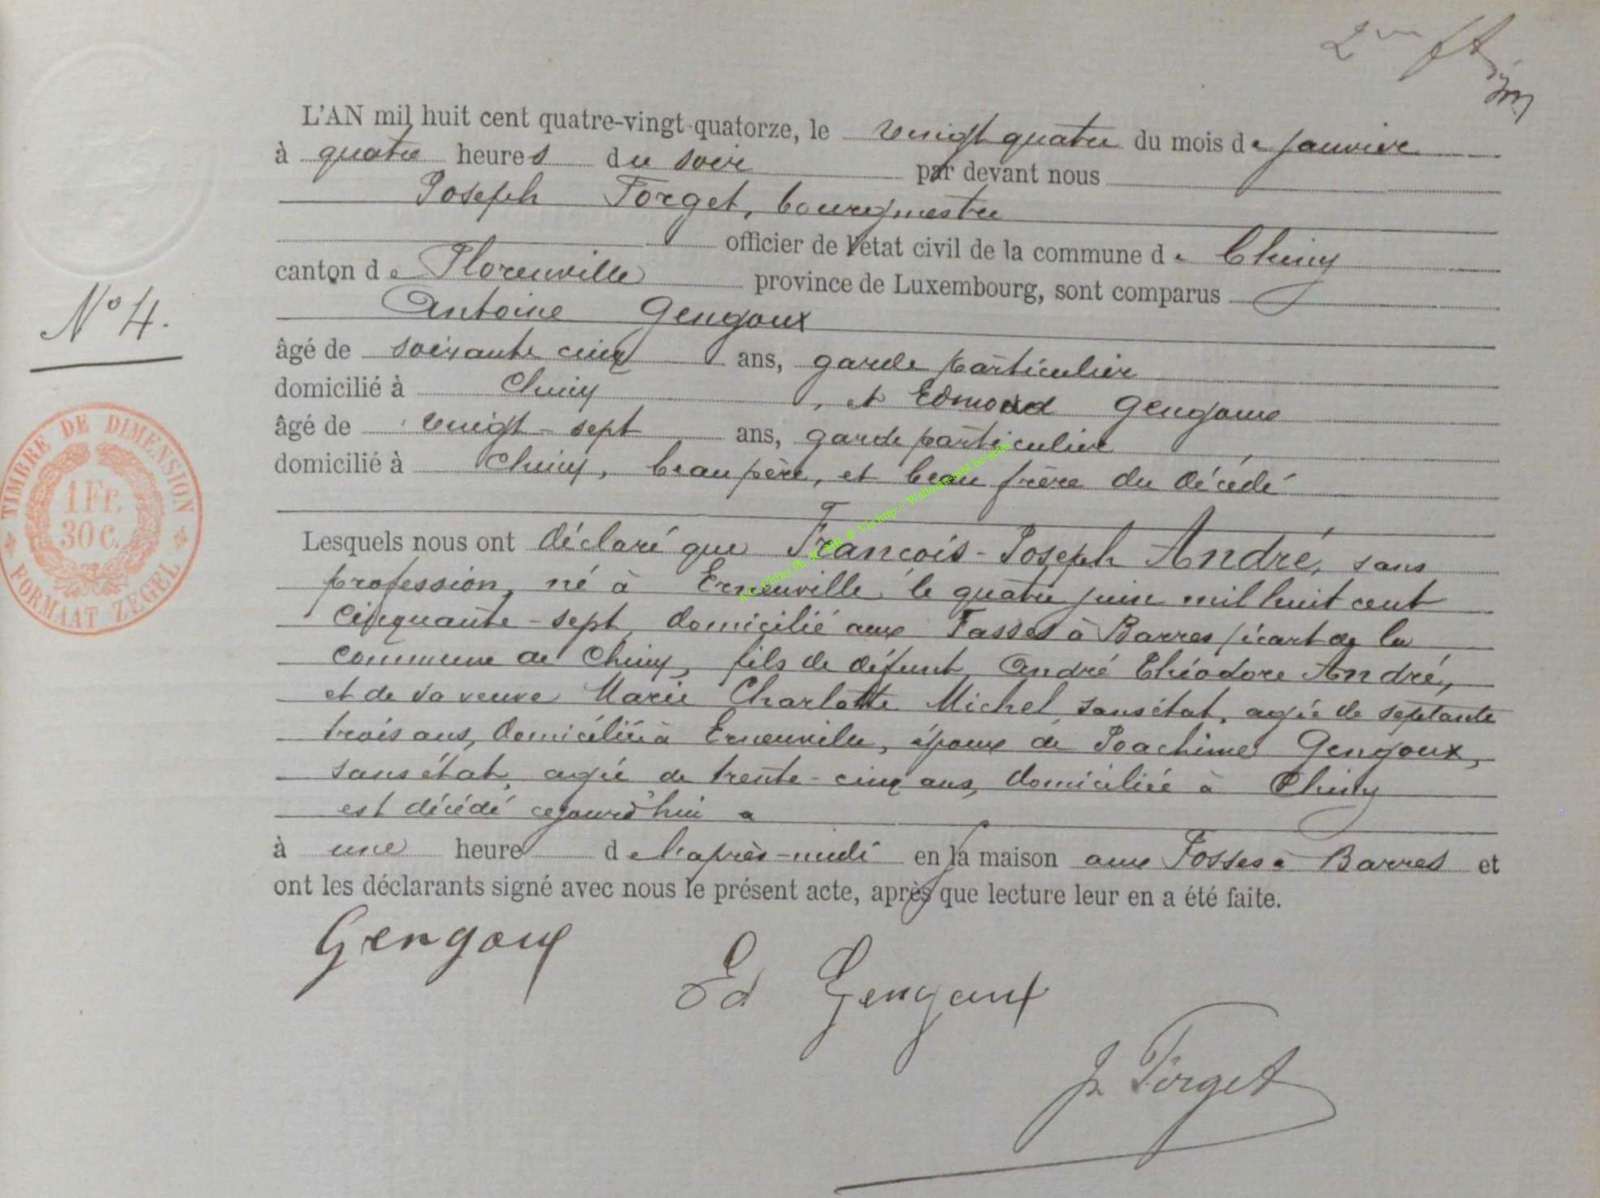 L'AN mil huit cent quatre-vingt-quatorze, le vingt quatre du mois de janvier
à quatre heures du soir par devant nous
Joseph Forget, bourgmestre
officier de l'état civil de la commune de Chiny
canton de Florenville province de Luxembourg, sont comparus
Antoine Gengoux
âgé de soixante cinq ans, garde particulier
domicilié à Chiny, et Edmond Gengoux
âgé de vingt-sept ans, garde particulier
domicilié à Chiny, beau père, et beau frère du décédé
Lesquels nous ont déclaré que François-Joseph André, sans
profession, né à Erneuville, le quatre juin mil huit cent
cinquante-sept, domicilié aux Fosses à Barres, écart de la
commune de Chiny, fils de défunt André Théodore André,
et de sa veuve Marie Charlotte Michel, sans état, agée de septante
trois ans, domiciliée à Erneuville, époux de Joachime Gengoux,
sans état, agée de trente-cinq ans, domiciliée à Chiny
est décédé cejourd'hui a
à une heure de l'après-midi en la maison aux Fosses à Barres et
ont les déclarants signé avec nous le présent acte, après que lecture leur en a été faite.
Gengoux
Ed Gengoux
J. Forget
N° 4.
TIMBRE DE DIMENSION
1 Fr.
30 C.
FORMAAT ZEGEL